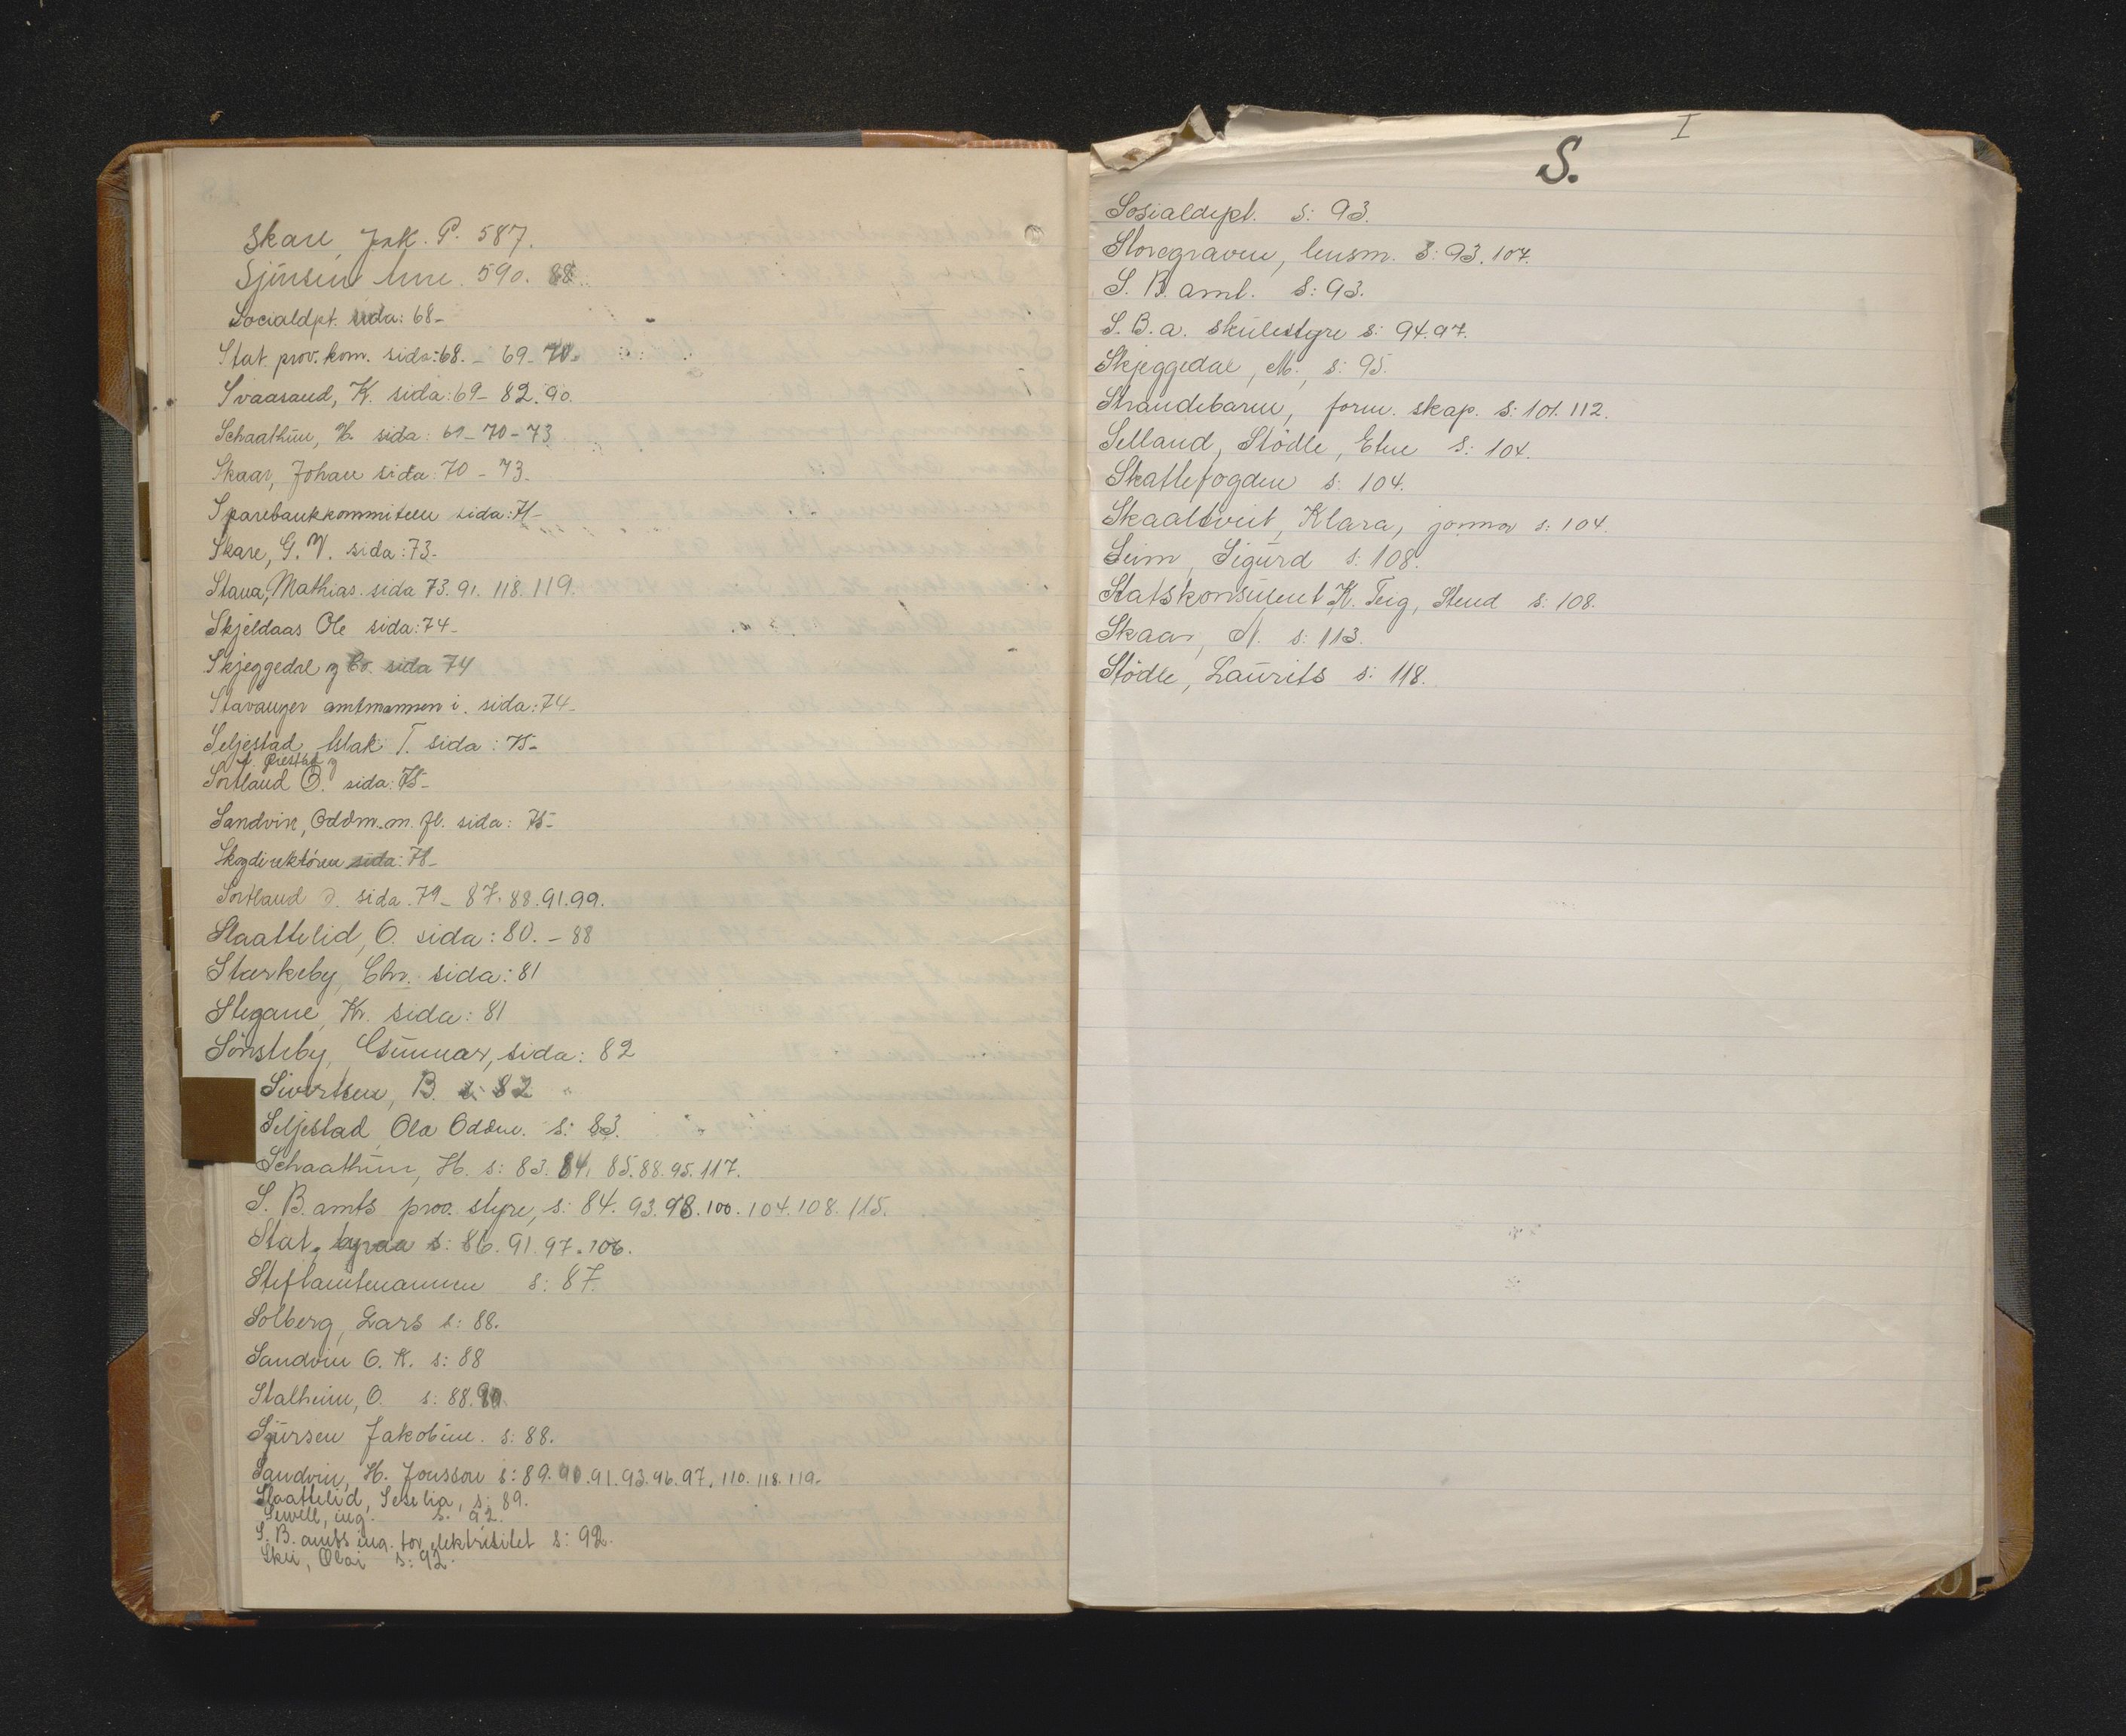 Skare, Jak. P. 587.
Sjursen Arne. 590. 88.
Socialdpt. sida: 68-
Stat. prov. kom. sida: 68. - 69- 70.
Svaasand, K. sida: 69- 82. 90.
Schaathun, H. sida: 69- 70 - 73
Skaar, Johan sida: 70 - 73-
Sparebankkommiteen sida: 71-
Skare, G. V. sida: 73-
Stana, Mathias. sida 73. 91. 118. 119.
Skjeldaas Ole sida: 74-
Skjeggedal og Co. sida 74
Stavanger amtmannen i. sida: 74-
Seljestad, Aslak T. sida: 75-
A. Prestlid og
Sortland O. sida: 75-
Sandvin, Oddm. m. fl. sida: 75-
Skogdirektören sida: 78-
Sortland O. sida. 79- 87. 88. 91. 99.
Slaattelid, O. sida: 80. - 88
Starkeby, Chr. sida: 81
Stegane, Kr. sida: 81
Sönsteby, Gunnar, sida: 82
Sivertsen, B. s: 82
Seljestad Ola Oddsn. s: 83.
Schaathun, H. s: 83. 84. 85. 88. 95. 117.
S. B. amts prov. styre, s: 84. 93. 98. 100. 104. 108. 115.
Stat. byraa s: 86. 91. 97. 106.
Stiftamtmannen s: 87.
Solberg, Lars s: 88.
Sandvin O. K. s: 88
Stalheim, O. s: 88. 90.
Sjursen Jakobine. s: 88.
Sandvin, H. Jonsson s: 89. 90. 91. 93. 96. 97. 110. 118. 119.
Slaattelid, Seselia, s: 89.
Sewell, ing. s. 92.
S. B. amts ing. for elektrisitet s: 92.
Skei, Olai s: 92.
I
S.
Sosialdept. s: 93.
Storegraven, lensm. s: 93. 107.
S. B. amt. s: 93.
S. B. a. skulestyre s: 94. 97.
Skjeggedal, M., s: 95.
Strandebarm, form. skap. s: 101. 112.
Selland, Stödle, Etne s: 104.
Skattefogden s: 104.
Skaaltveit, Klara, jormor s: 104.
Seim, Sigurd s: 108.
Statskonsulent K. Teig, Stend s: 108.
Skaar, N. s: 113.
Stödle, Laurits s: 118.